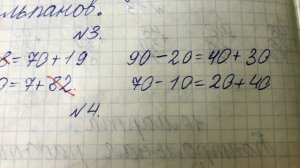 льпанов.
N3.
8=70+19 90-20=40+30
0=7+82 70-10=20+40
N4.